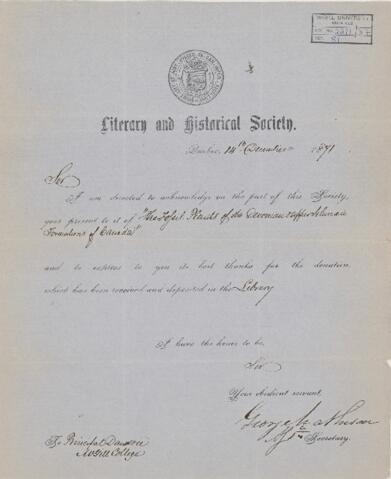 McGILL UNIVERSITY
ARCHIVES
ACC. NO.
REF.
Literary and Historical Society.
Quebec, 14th December 1871
Sir
I am directed to acknowledge on the part of this Society,
your present to it of "The Fossil Plants of the Devonian & Upper Silurian
Formations of Canada"
and to express to you its best thanks for the donation
which has been received and deposited in the Library
I have the honor to be,
Sir
Your obedient servant,
George
Secretary.
To Principal Dawson
McGill College